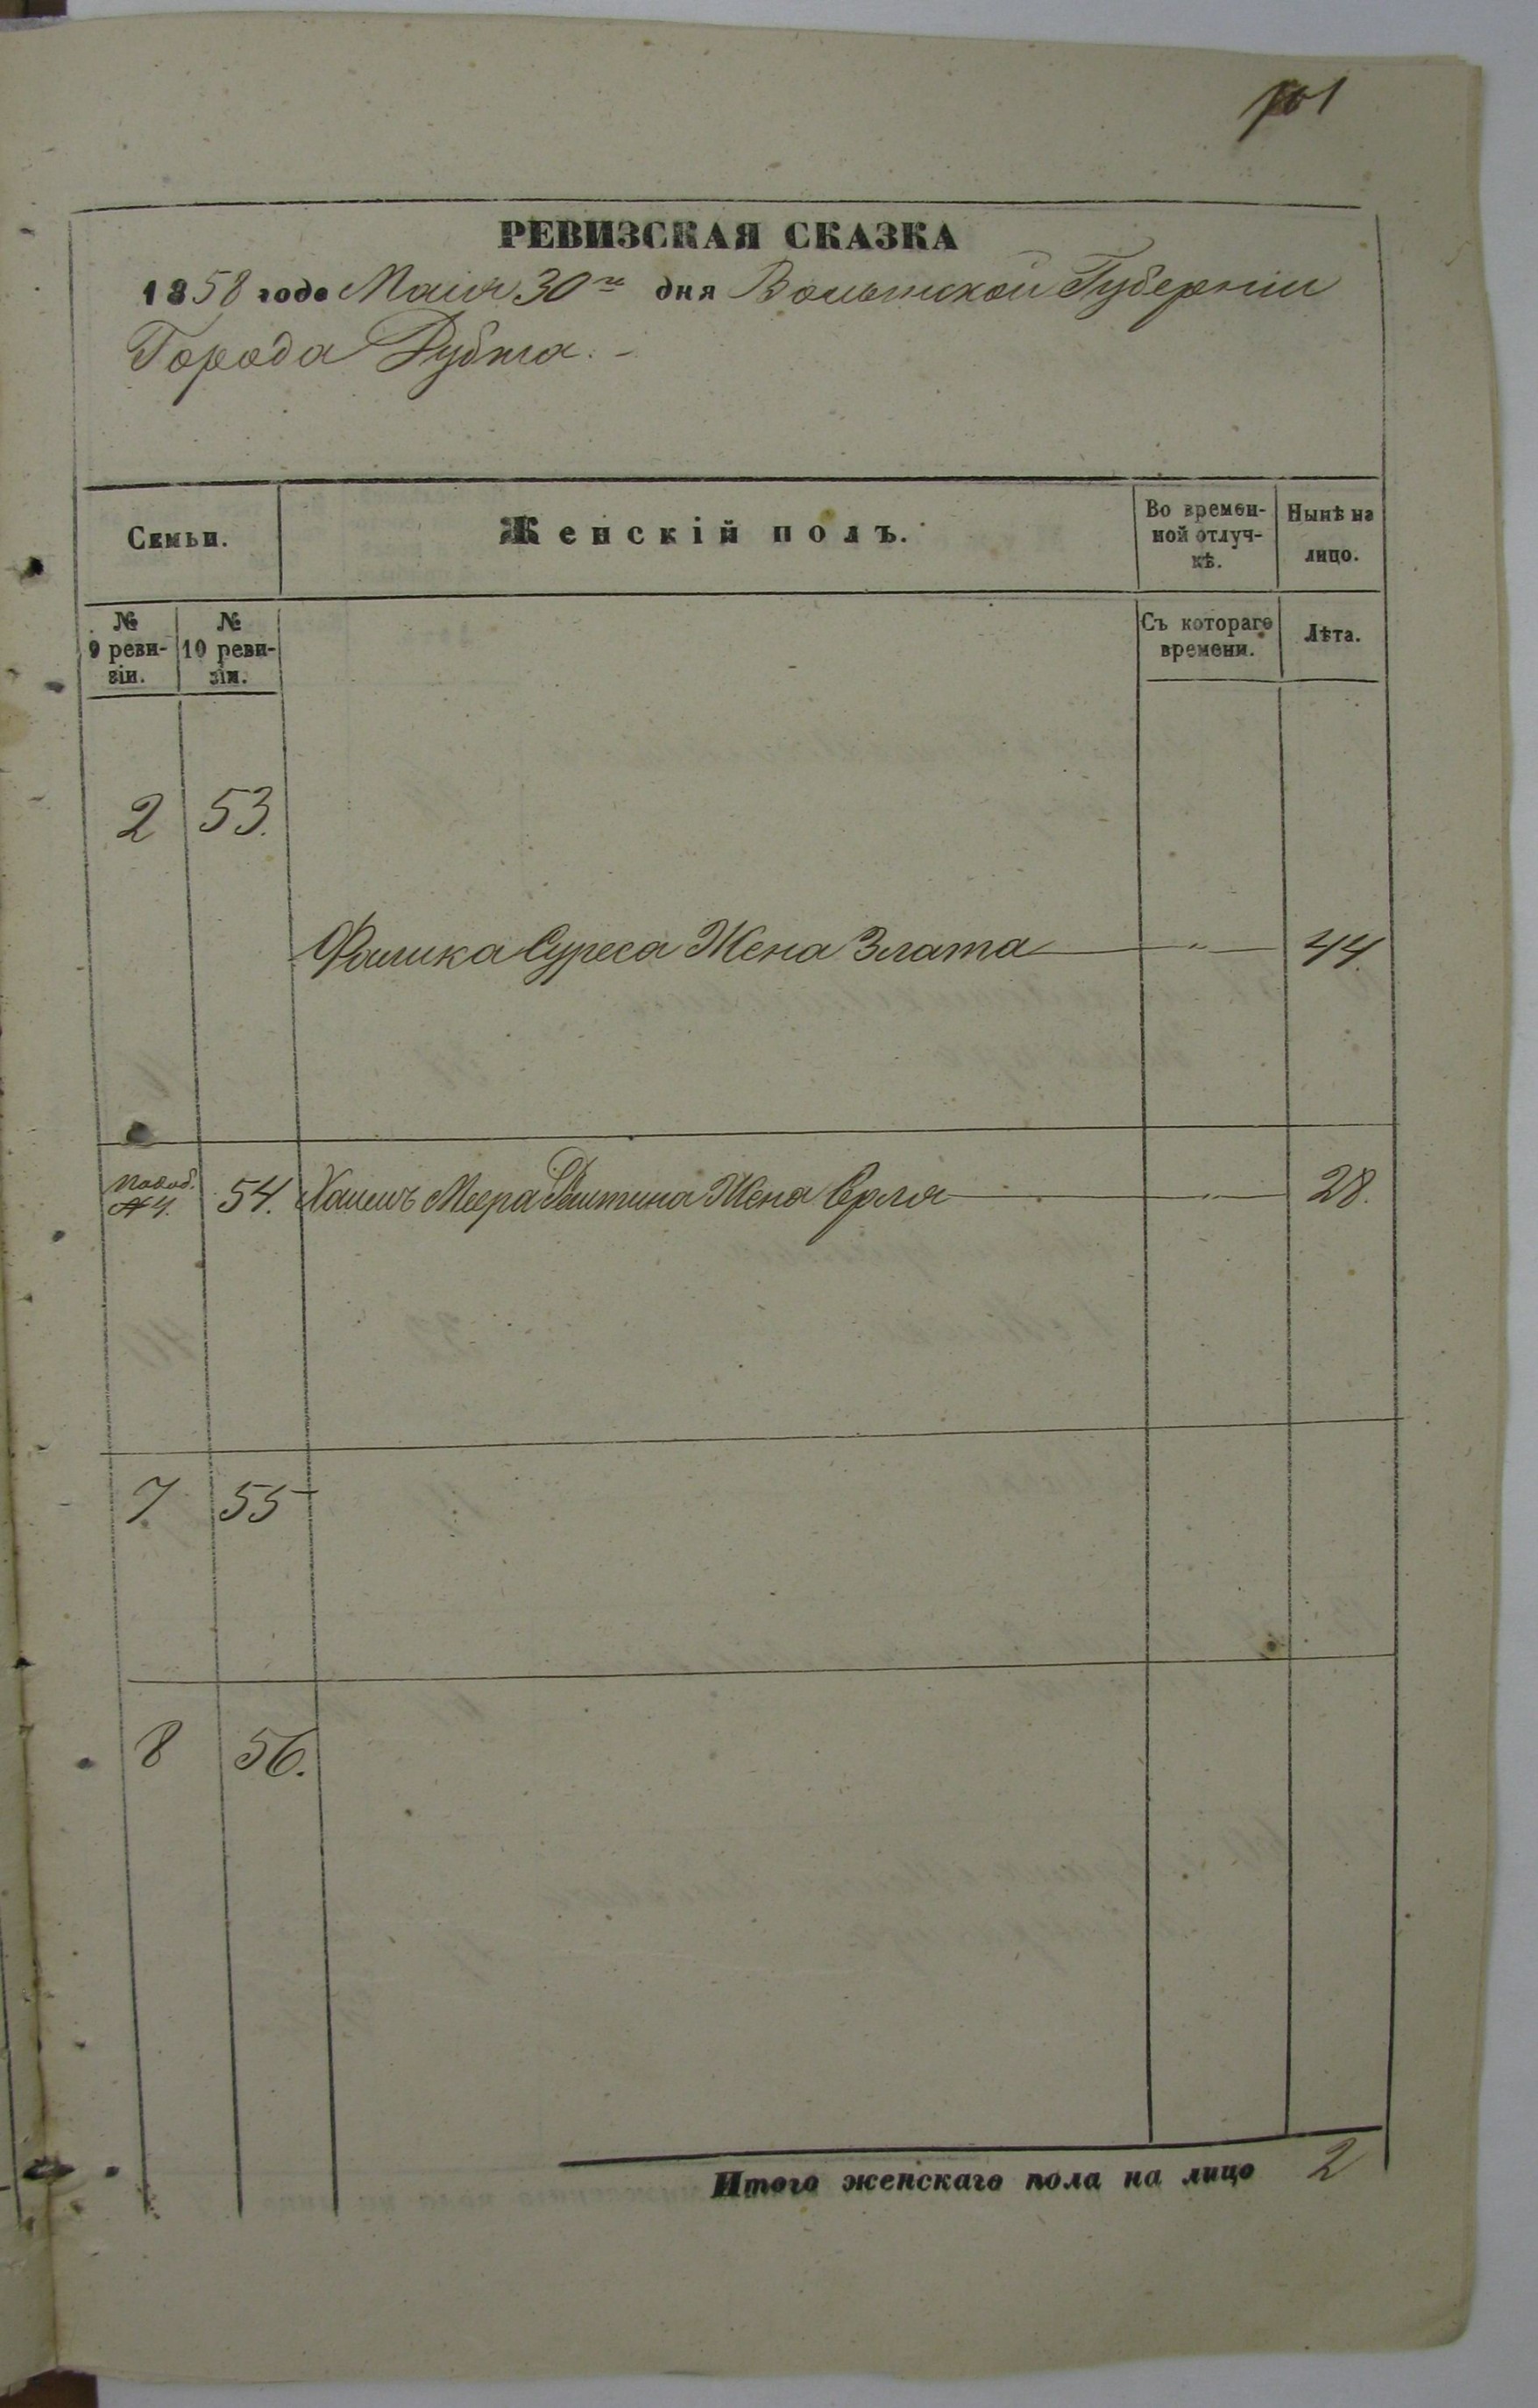 101
РЕВИЗСКАЯ СКАЗКА
1858 года Маія 30го дня Волынской Губерніи
Города Дубна.
Семьи.
Женскій полъ.
Во времен-
ной отлуч-
кѣ.
Нынѣ на
лицо.
№
9 реви-
зіи.
№
10 реви-
зіи.
Съ котораго
времени.
Лѣта.
2 53.
Фалика Суреса Жена Злата — " — 44.
54. Меера Жена Серля — " — 28.
7 55
8 56.
Итого женскаго пола на лицо 2